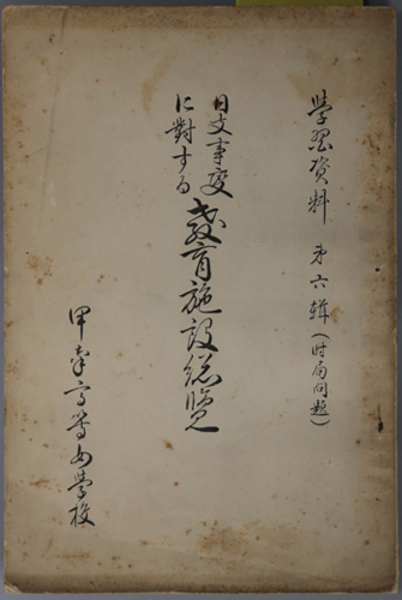 學習資料 第六輯(时局问題)
日支事変
に對する
教育施設総覧
甲南高等女學校